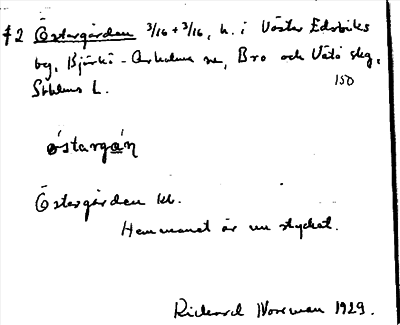 f 2 Östergården 3/16 + 3/16, h. i Väster Edsviks
by, Björkö-Arholma sn, Bro och Vätö skg,
Sthlms l. 150
östargą́n
Östergården kl.
Hemmanet är nu styckat.
Rickard Norrman 1929.